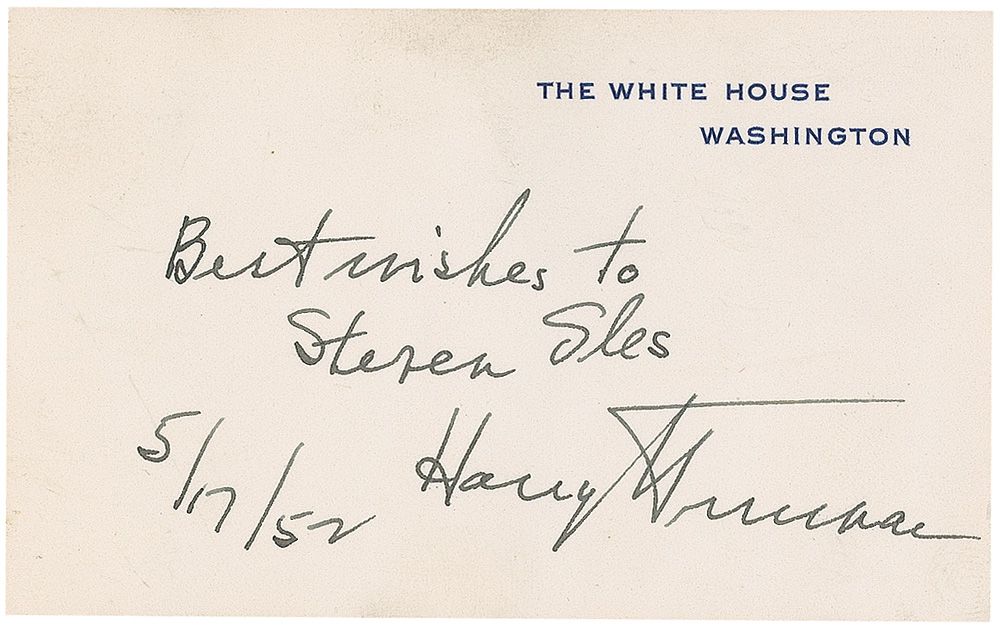 THE WHITE HOUSE
WASHINGTON
Best wishes to
Steven Sles
5/17/52
Harry Truman